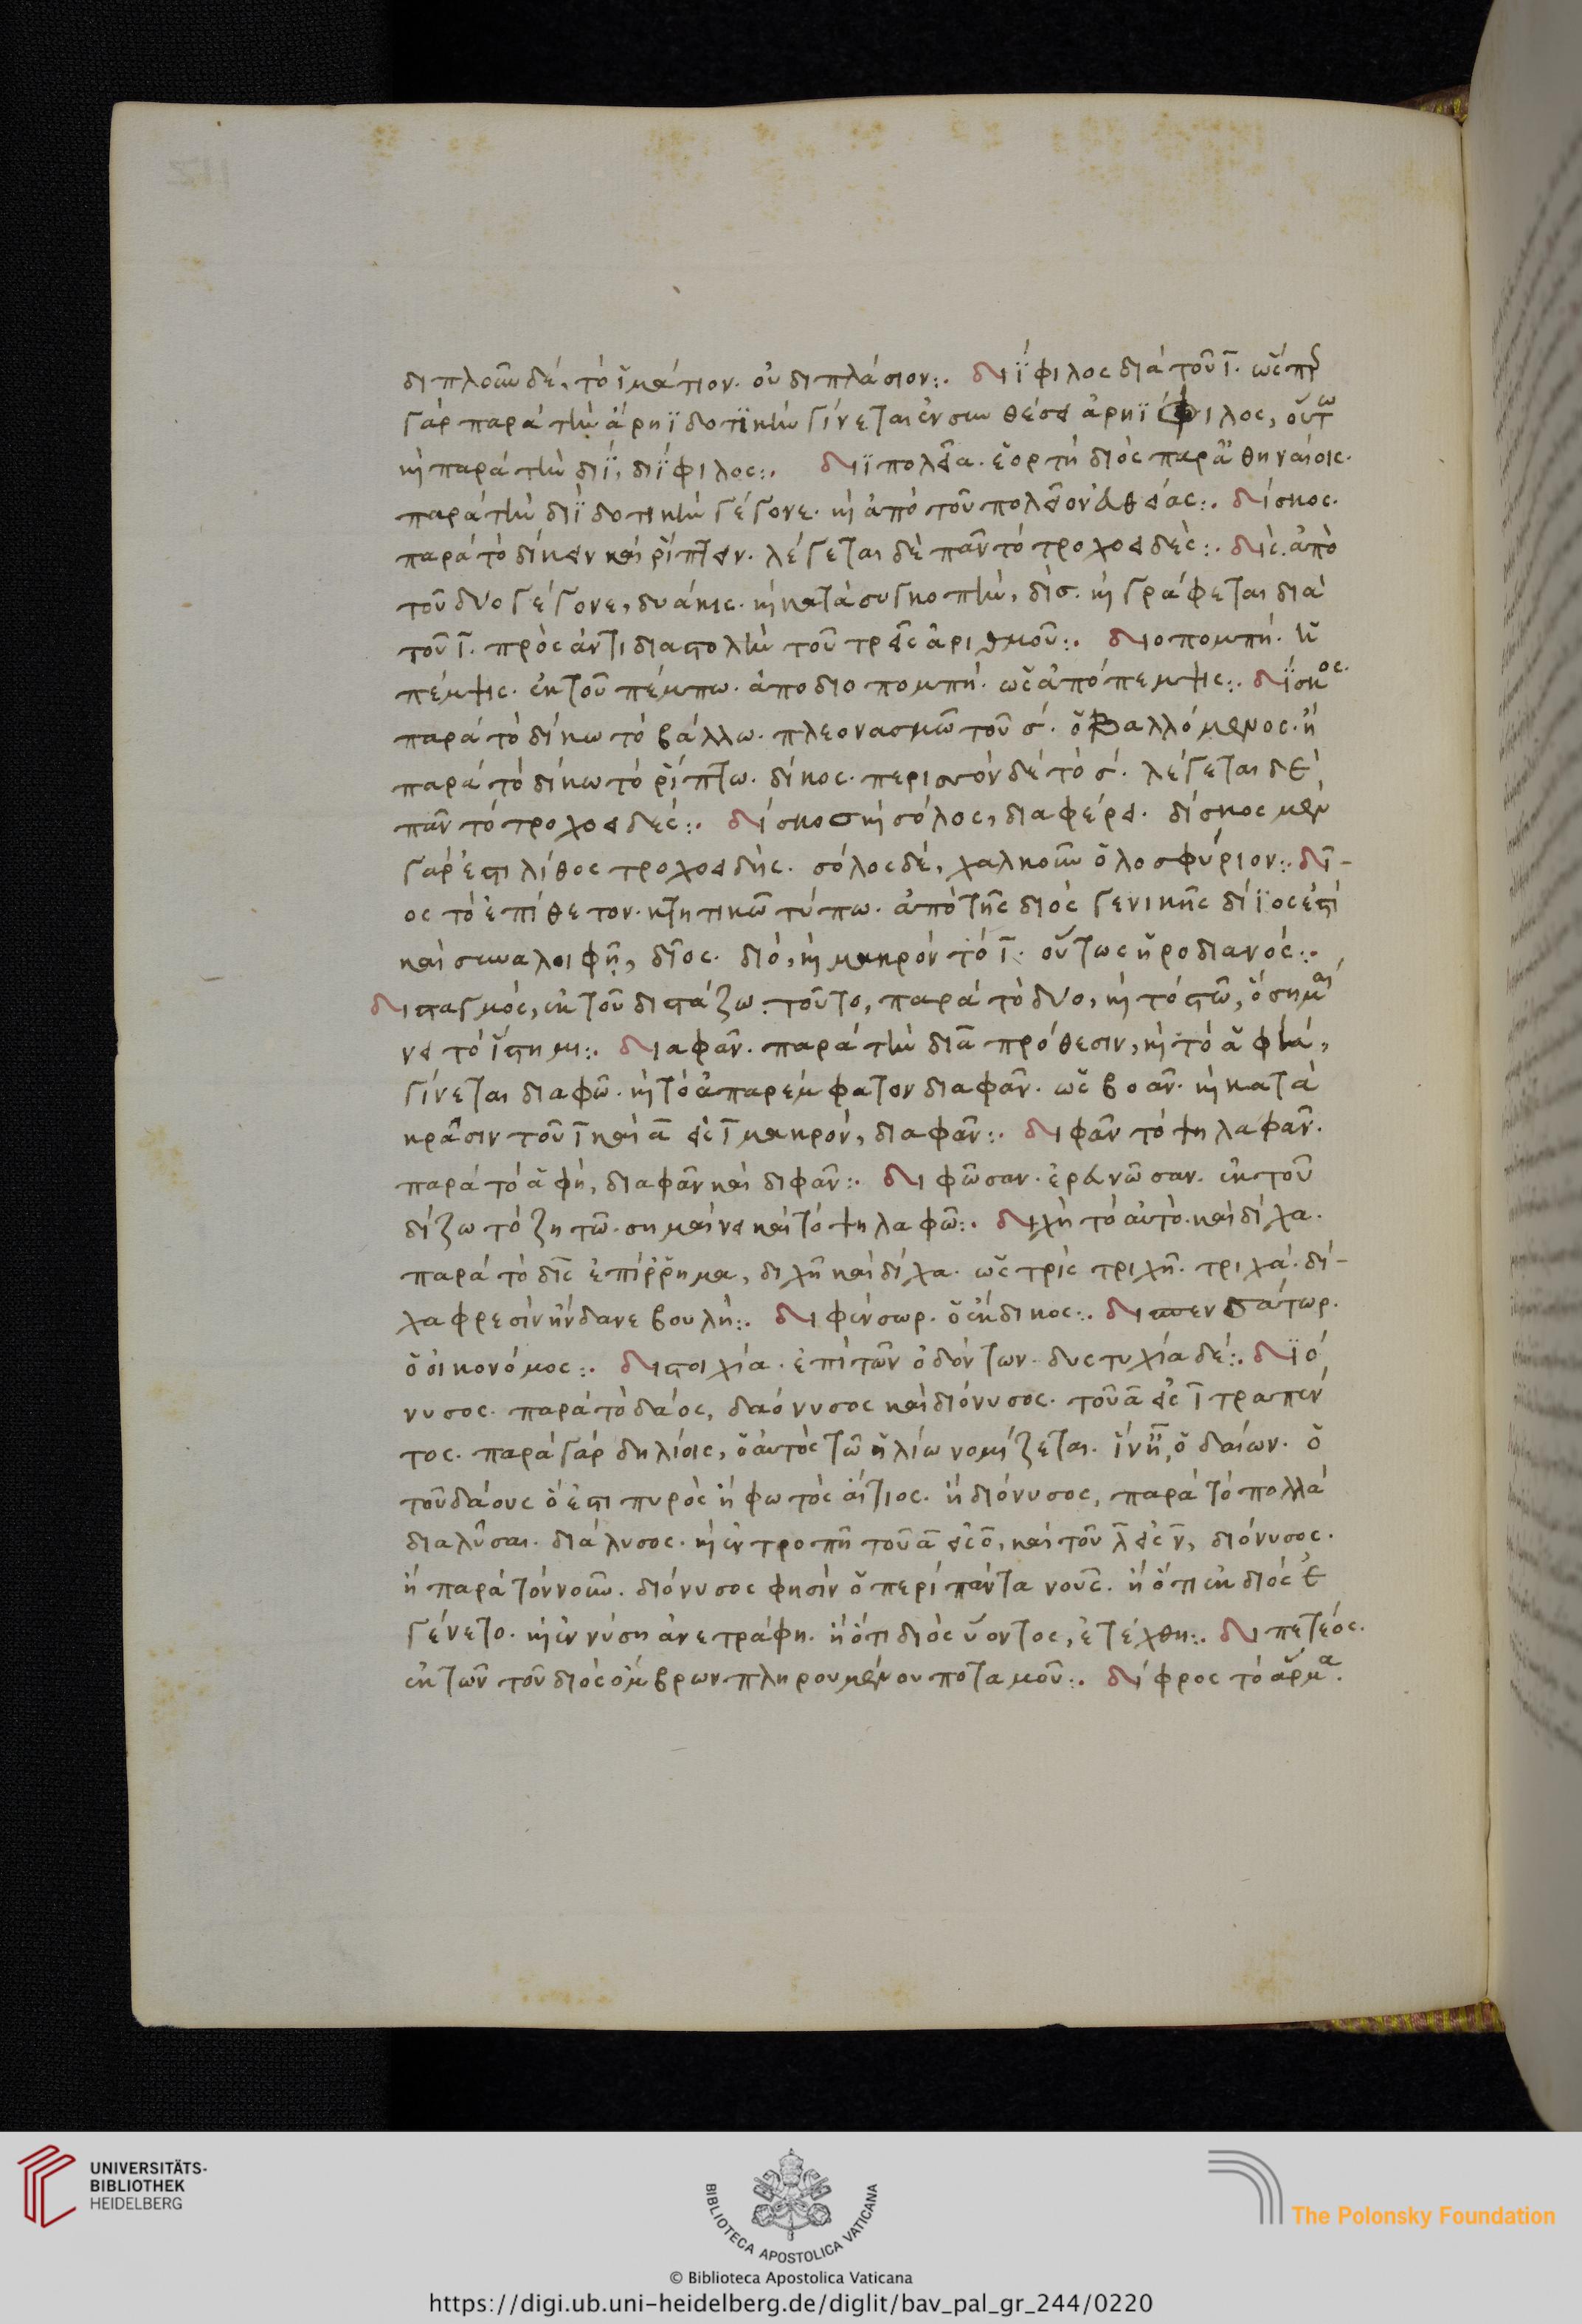 διπλοῦν δέ, τὸ ἱμάτιον. οὐ διπλάσιον:. διΐφιλος διὰ τοῦ ῑ. ὥσπερ
γὰρ παρὰ τὴν ἄρηϊ δοτικὴν γίνεται ἐν συνθέσει ἀρηΐφιλος, οὕτω
καὶ παρὰ τὴν διΐ, διΐφιλος:. διϊπόλεια. ἑορτὴ διὸς παρ' ἀθηναίοις.
παρὰ τὴν διῒ δοτικὴν γέγονε. καὶ ἀπὸ τοῦ πολεῖον θείας:. δίσκος.
παρὰ τὸ δίκειν καὶ ῥίπτειν. λέγεται δὲ πᾶν τὸ τροχοειδές:. δίς. ἀπὸ
τοῦ δύο γέγονε, δυάκις. καὶ κατὰ συγκοπὴν, δίσ. καὶ γράφεται διὰ
τοῦ ῑ. πρὸς ἀντιδιαστολὴν τοῦ τρεῖς ἀριθμοῦ:. διοπομπή. ἡ
πέμψις. ἐκ τοῦ πέμπω. ἀποδιοπομπή. ὡς ἀπόπεμψις:. δίσκος.
παρὰ τὸ δίκω τὸ βάλλω. πλεονασμῶ τοῦ σ. ὁ βαλλόμενος. ἢ
παρὰ τὸ δίκω τὸ ῥίπτω. δίκος. περισσὸν δὲ τὸ σ. λέγεται δὲ
πᾶν τὸ τροχοειδές:. δίσκος καὶ σόλος, διαφέρει. δίσκος μὲν
γάρ ἐστι λίθος τροχοειδής. σόλος δέ, χαλκοῦν ὁλοσφύριον:. δῖ-
ος τὸ ἐπίθετον. κτητικῶ τύπω. ἀπὸ τῆς διὸς γενικῆς δίϊος ἐστὶ
καὶ συναλοιφῆ, δῖος. διό, καὶ μακρὸν τὸ ῑ. οὕτως ἡροδιανός:.
δισταγμός, ἐκ τοῦ διστάζω. τοῦτο, παρὰ τὸ δύο, καὶ τὸ στῶ, ὃ σημαί
νει τὸ ἵστημι:. διαφᾶν. παρὰ τὴν διὰ πρόθεσιν, καὶ τὸ ἁφὴ,
γίνεται διαφῶ. καὶ τὸ ἀπαρέμφατον διαφᾶν. ὡς βοᾶν. καὶ κατὰ
κρᾶσιν τοῦ ῑ καὶ ᾱ εἰς ῑ μακρόν, διαφᾶν:. διφᾶν τὸ ψηλαφᾶν.
παρὰ τὸ ἁφή, διαφᾶν καὶ διφᾶν:. διφῶσαν. ἐρευνῶσαν. ἐκ τοῦ
δίζω τὸ ζητῶ. σημαίνει καὶ τὸ ψηλαφῶ:. διχῆ τὸ αὐτὸ. καὶ δίχα.
παρὰ τὸ δὶς ἐπίρρημα, διχῆ καὶ δίχα. ὡς τρὶς τριχῆ. τριχά. δί-
χα φρεσὶν ἥνδανε βουλή:. διφένσωρ. ὁ ἔκδικος:. δισπενσάτωρ.
ὁ οἰκονόμος:. διστοιχία. ἐπὶ τῶν ὀδόντων. δυστυχία δέ:. διό
νυσος. παρὰ τὸ δάος, δαόνυσος καὶ διόνυσος. τοῦ ᾱ εἰς ῑ τραπέν
τος. παρὰ γὰρ δηλίοις, ὁ αὐτὸς τῶ ἡλίω νομίζεται. ἵν' ἦ, ὁ δαίων. ὁ
τοῦ δάους ὅ ἐστι πυρὸς ἢ φωτὸς αἴτιος. ἢ διόνυσος, παρὰ τὸ πολλὰ
διαλῦσαι. διάλυσος. καὶ ἐν τροπῆ τοῦ ᾱ εἰς ο̄, καὶ τοῦ λ̄ εἰς ν̄, διόνυσος.
ἢ παρὰ τὸν νοῦν. διόνυσος φησὶν ὁ περὶ πάντα νοῦς. ἢ ὅτι ἐκ διὸς ἐ
γένετο. καὶ ἐν νύση ἀνετράφη. ἢ ὅτι διὸς ὕοντος, ἐτέχθη:. διπετέος.
ἐκ τῶν τοῦ διὸς ὄμβρων πληρουμένου ποταμοῦ:. δίφρος τὸ ἅρμα.
UNIVERSITÄTS-
BIBLIOTHEK
HEIDELBERG
BIBLIOTECA APOSTOLICA VATICANA
The Polonsky Foundation
© Biblioteca Apostolica Vaticana
https://digi.ub.uni-heidelberg.de/diglit/bav_pal_gr_244/0220